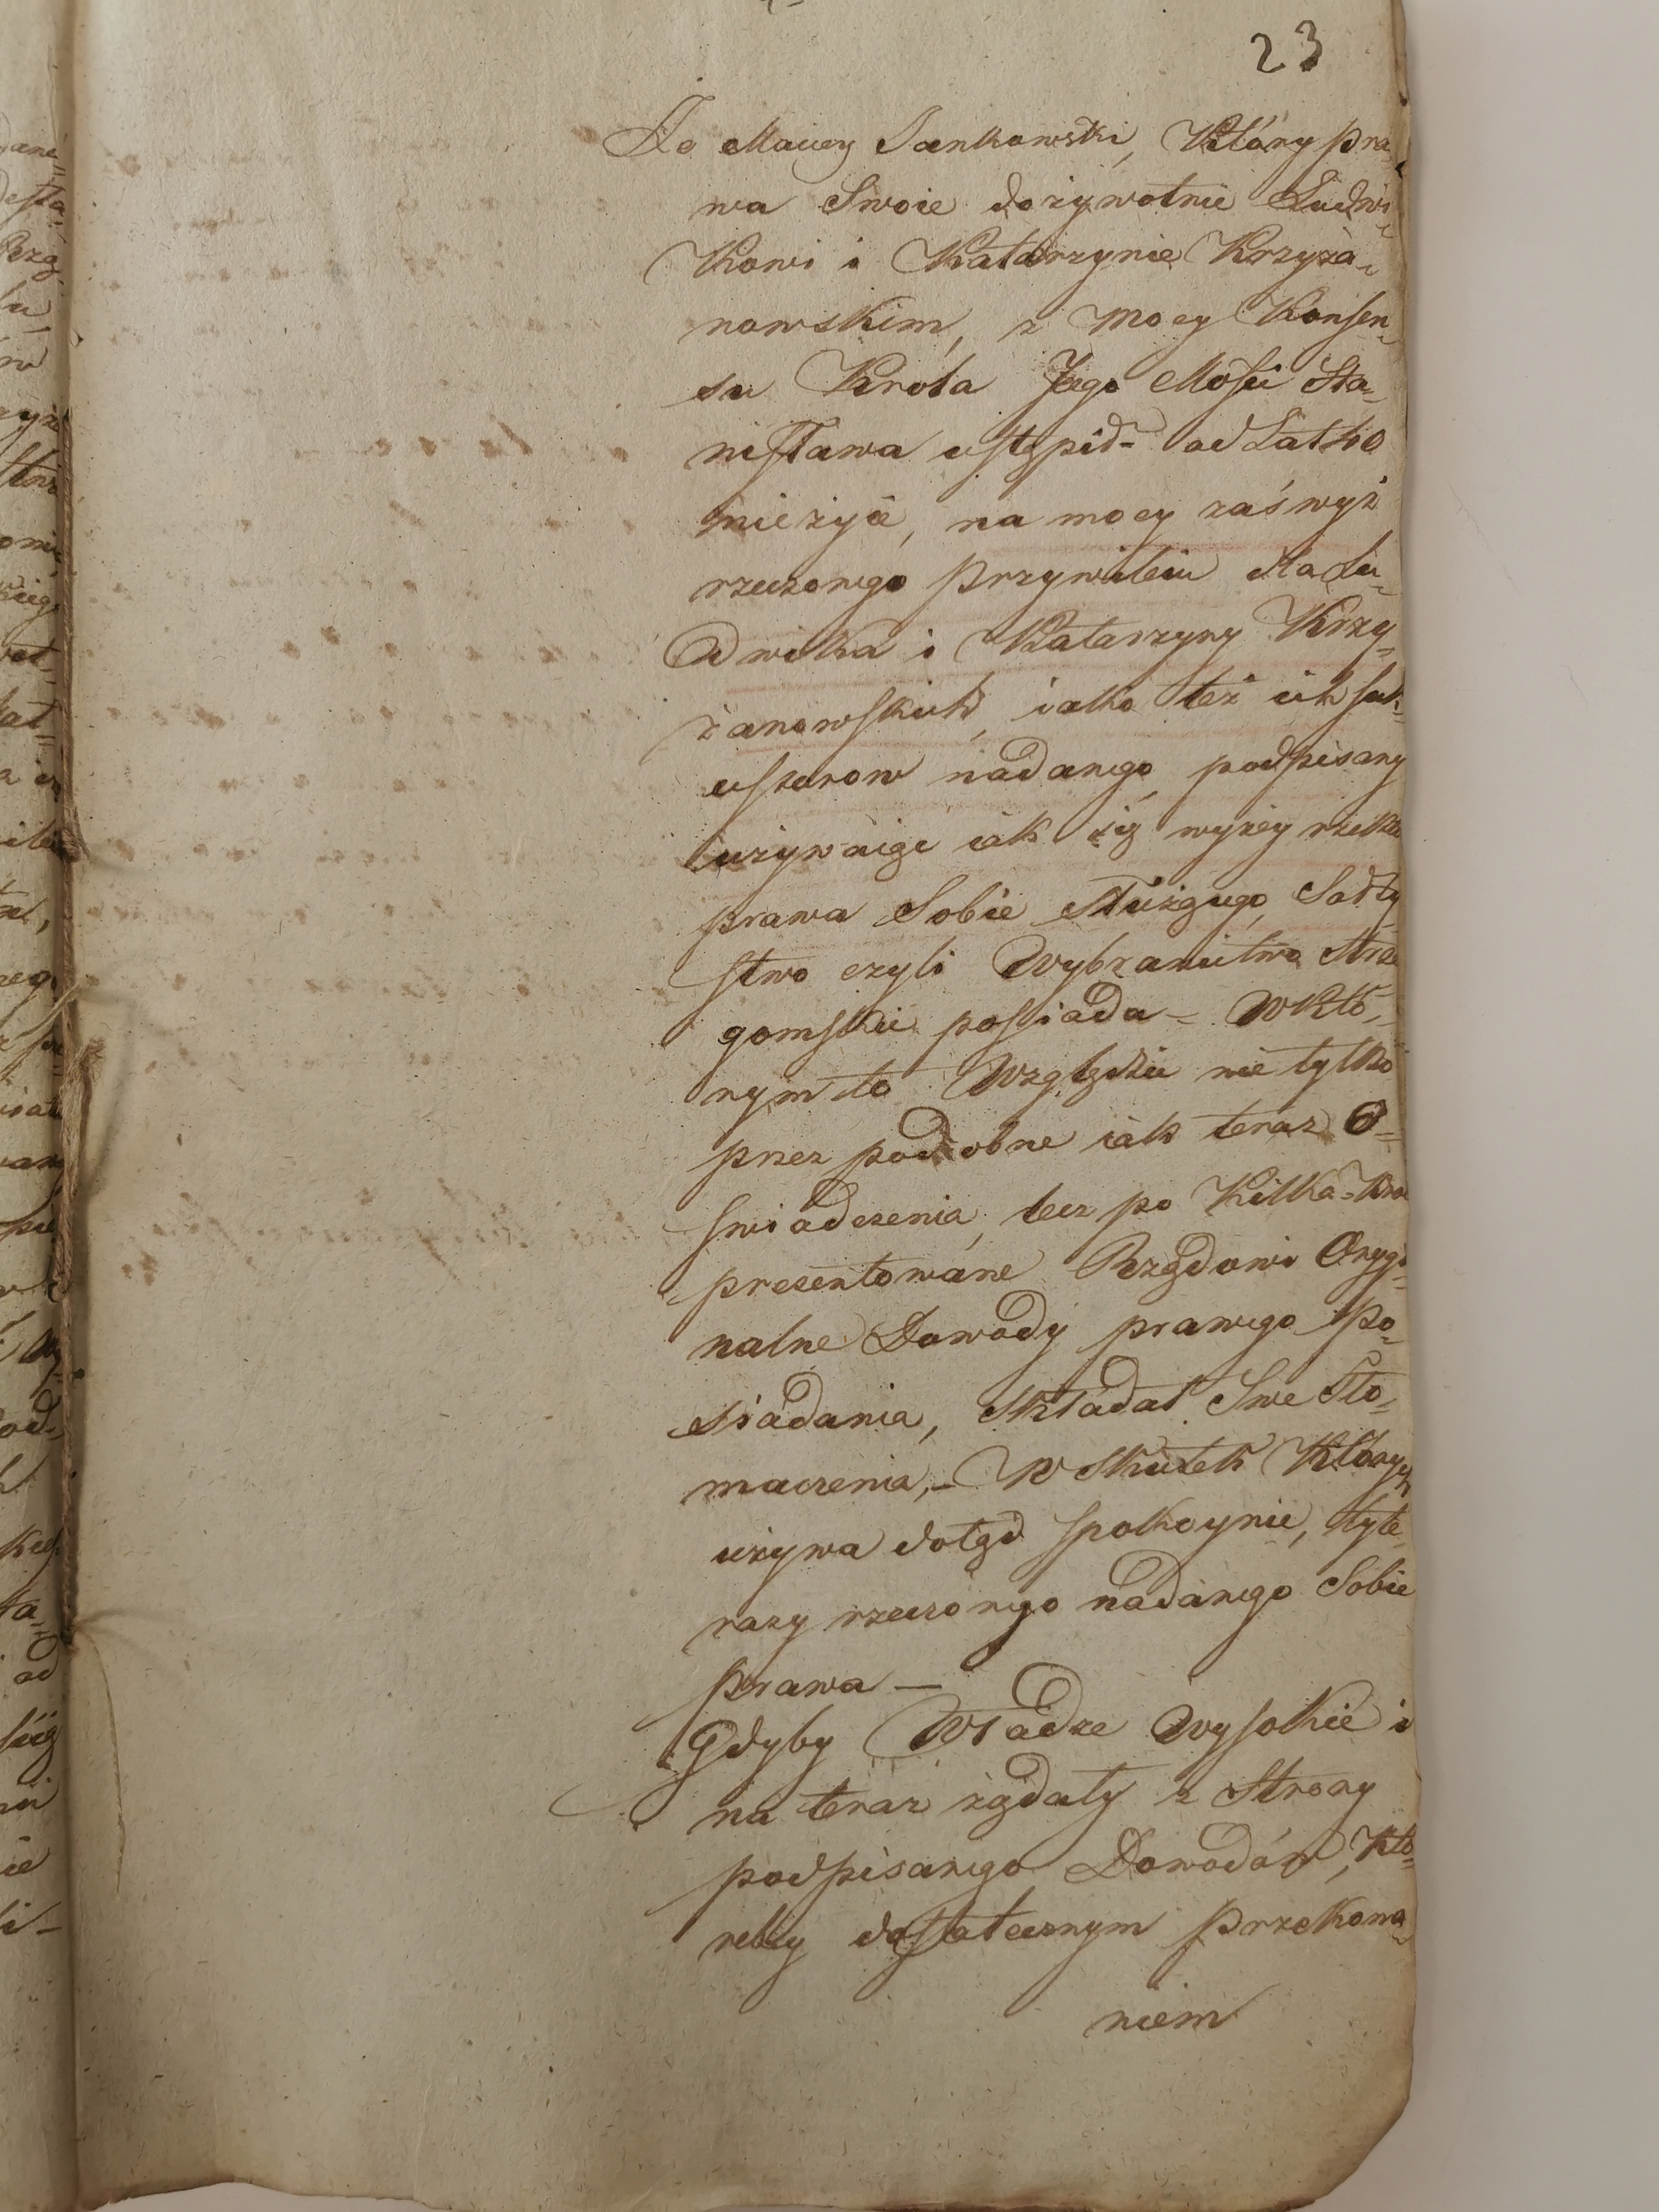 23
Że Maciey Jankowski, Który pra„
wa Swoie dożywotnie Ludwi„
Kowi i Katarzynie Krzyża„
nowskim, z Mocy Konsen„
su Króla Jego Mości Sta„
nisława ustąpił - od Lat 40
nieżyie, na mocy zaś wyż
rzeczonego Przywileiu dla Lu„
dwika i Katarzyny Krzy„
żanowskich, iako też ich suk„
cessorow nadanego, podpisany
używaiąc iak się wyżey rzekło
prawa Sobie służącego, Sołty
stwo czyli Wybraniectwo Strze
gomskie possiada – W Któ„
rym to Względzie nie tylko
przez podobne iak teraz O„
świadczenia, lecz po Kilka-Kro
presentowane Rządowi Orygi„
nalne Dowody prawego Po„
siadania, składał Swe tło„
maczenia, – W Skutek Których
używa dotąd spokoynie, tyle„
razy rzeczonego nadanego Sobie
prawa —
Gdyby Władze Wysokie i
na teraz żądały z Strony
podpisanego Dowodów, Któ„
reby dostatecznym Przekona„
niem